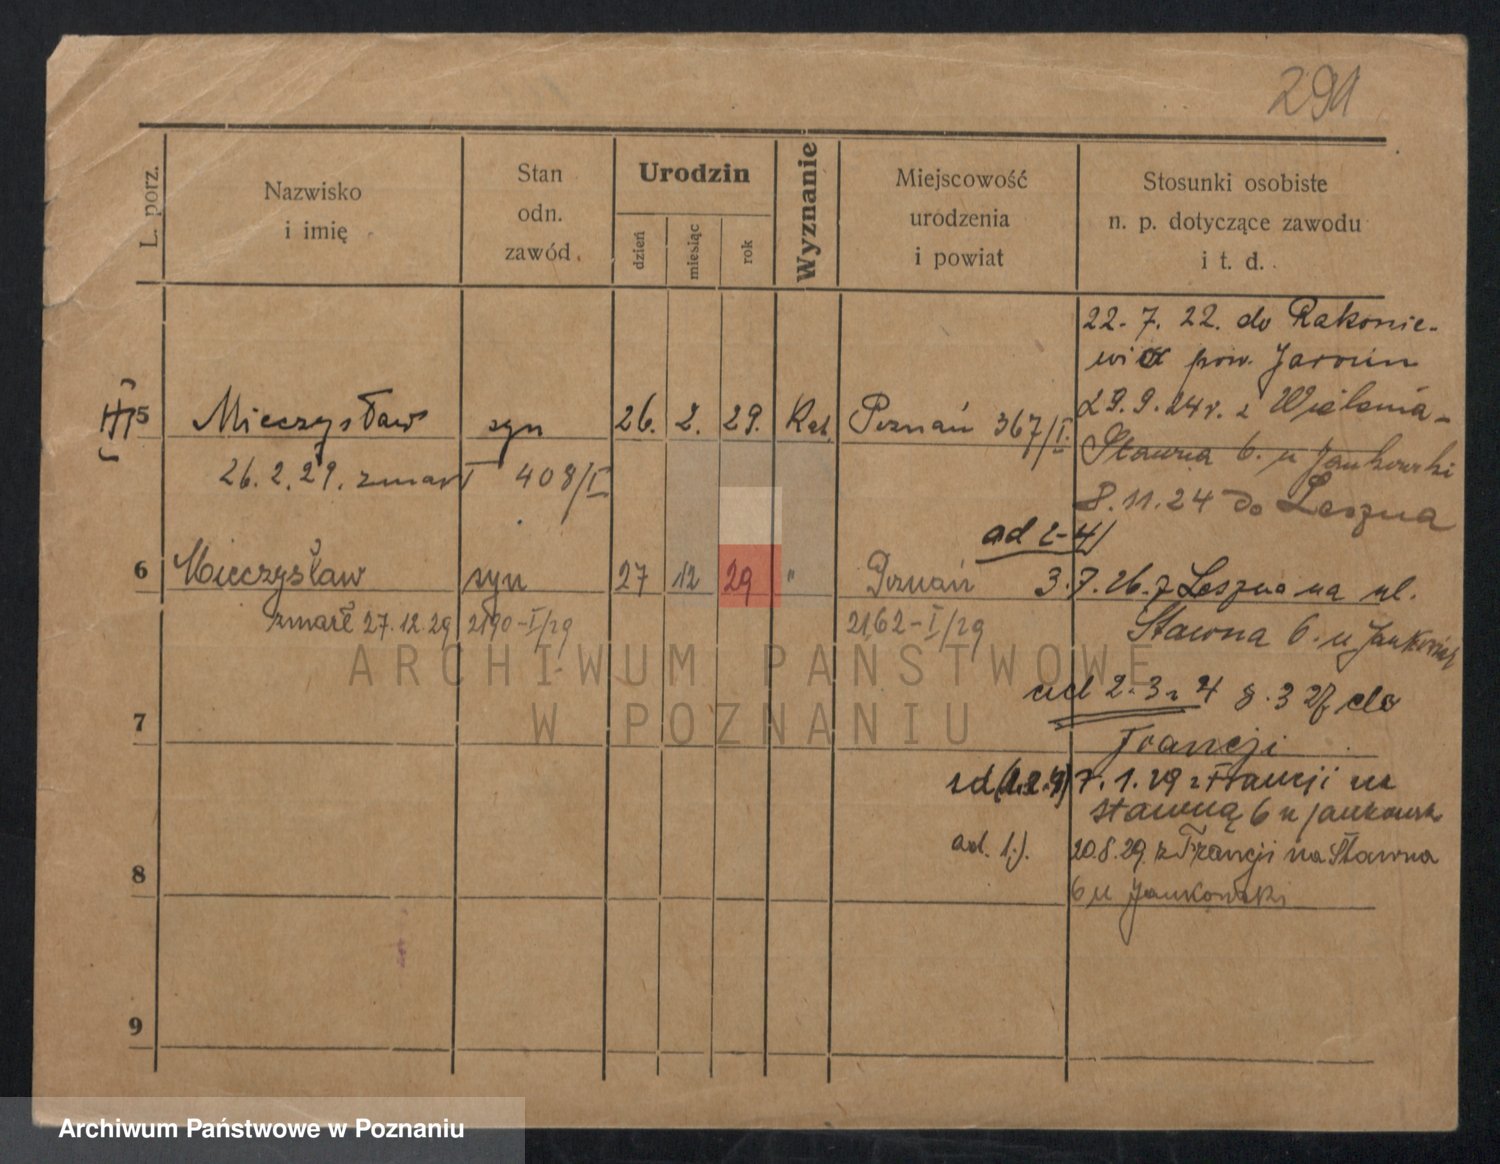 291
L. porz.
Nazwisko
i imię
Stan
odn.
zawód.
Urodzin
dzień
miesiąc
rok
Wyznanie
Miejscowość
urodzenia
i powiat
Stosunki osobiste
n. p. dotyczące zawodu
i t. d.
22. 7. 22. do Rakonie-
wic pow.
5 Mieczysław syn 26. 2. 29. Kat Poznań 367/I.
29. 9. 24 r. z
26. 2. 29. zmarł 408/I
Stawna 6. u Jankowski
8. 11. 24 do Leszna
ad 2-4/
6 Mieczysław syn 27 12 29 " Poznań
3. 7. 26. z Leszna na ul.
zmarł 27.12.29 2190-I/29 2162-I/29
Stawna 6. u
ad 2. 3 i 4 8. 3 27 do
Francji
7
ad (1.2.4) 7. 1. 29 z Francji na
Stawną 6 u Jankowsk
ad. 1.). 20.8.29. z Francji na Stawna
6 u Jankowski
8
9
ARCHIWUM PAŃSTWOWE
W POZNANIU
Archiwum Państwowe w Poznaniu